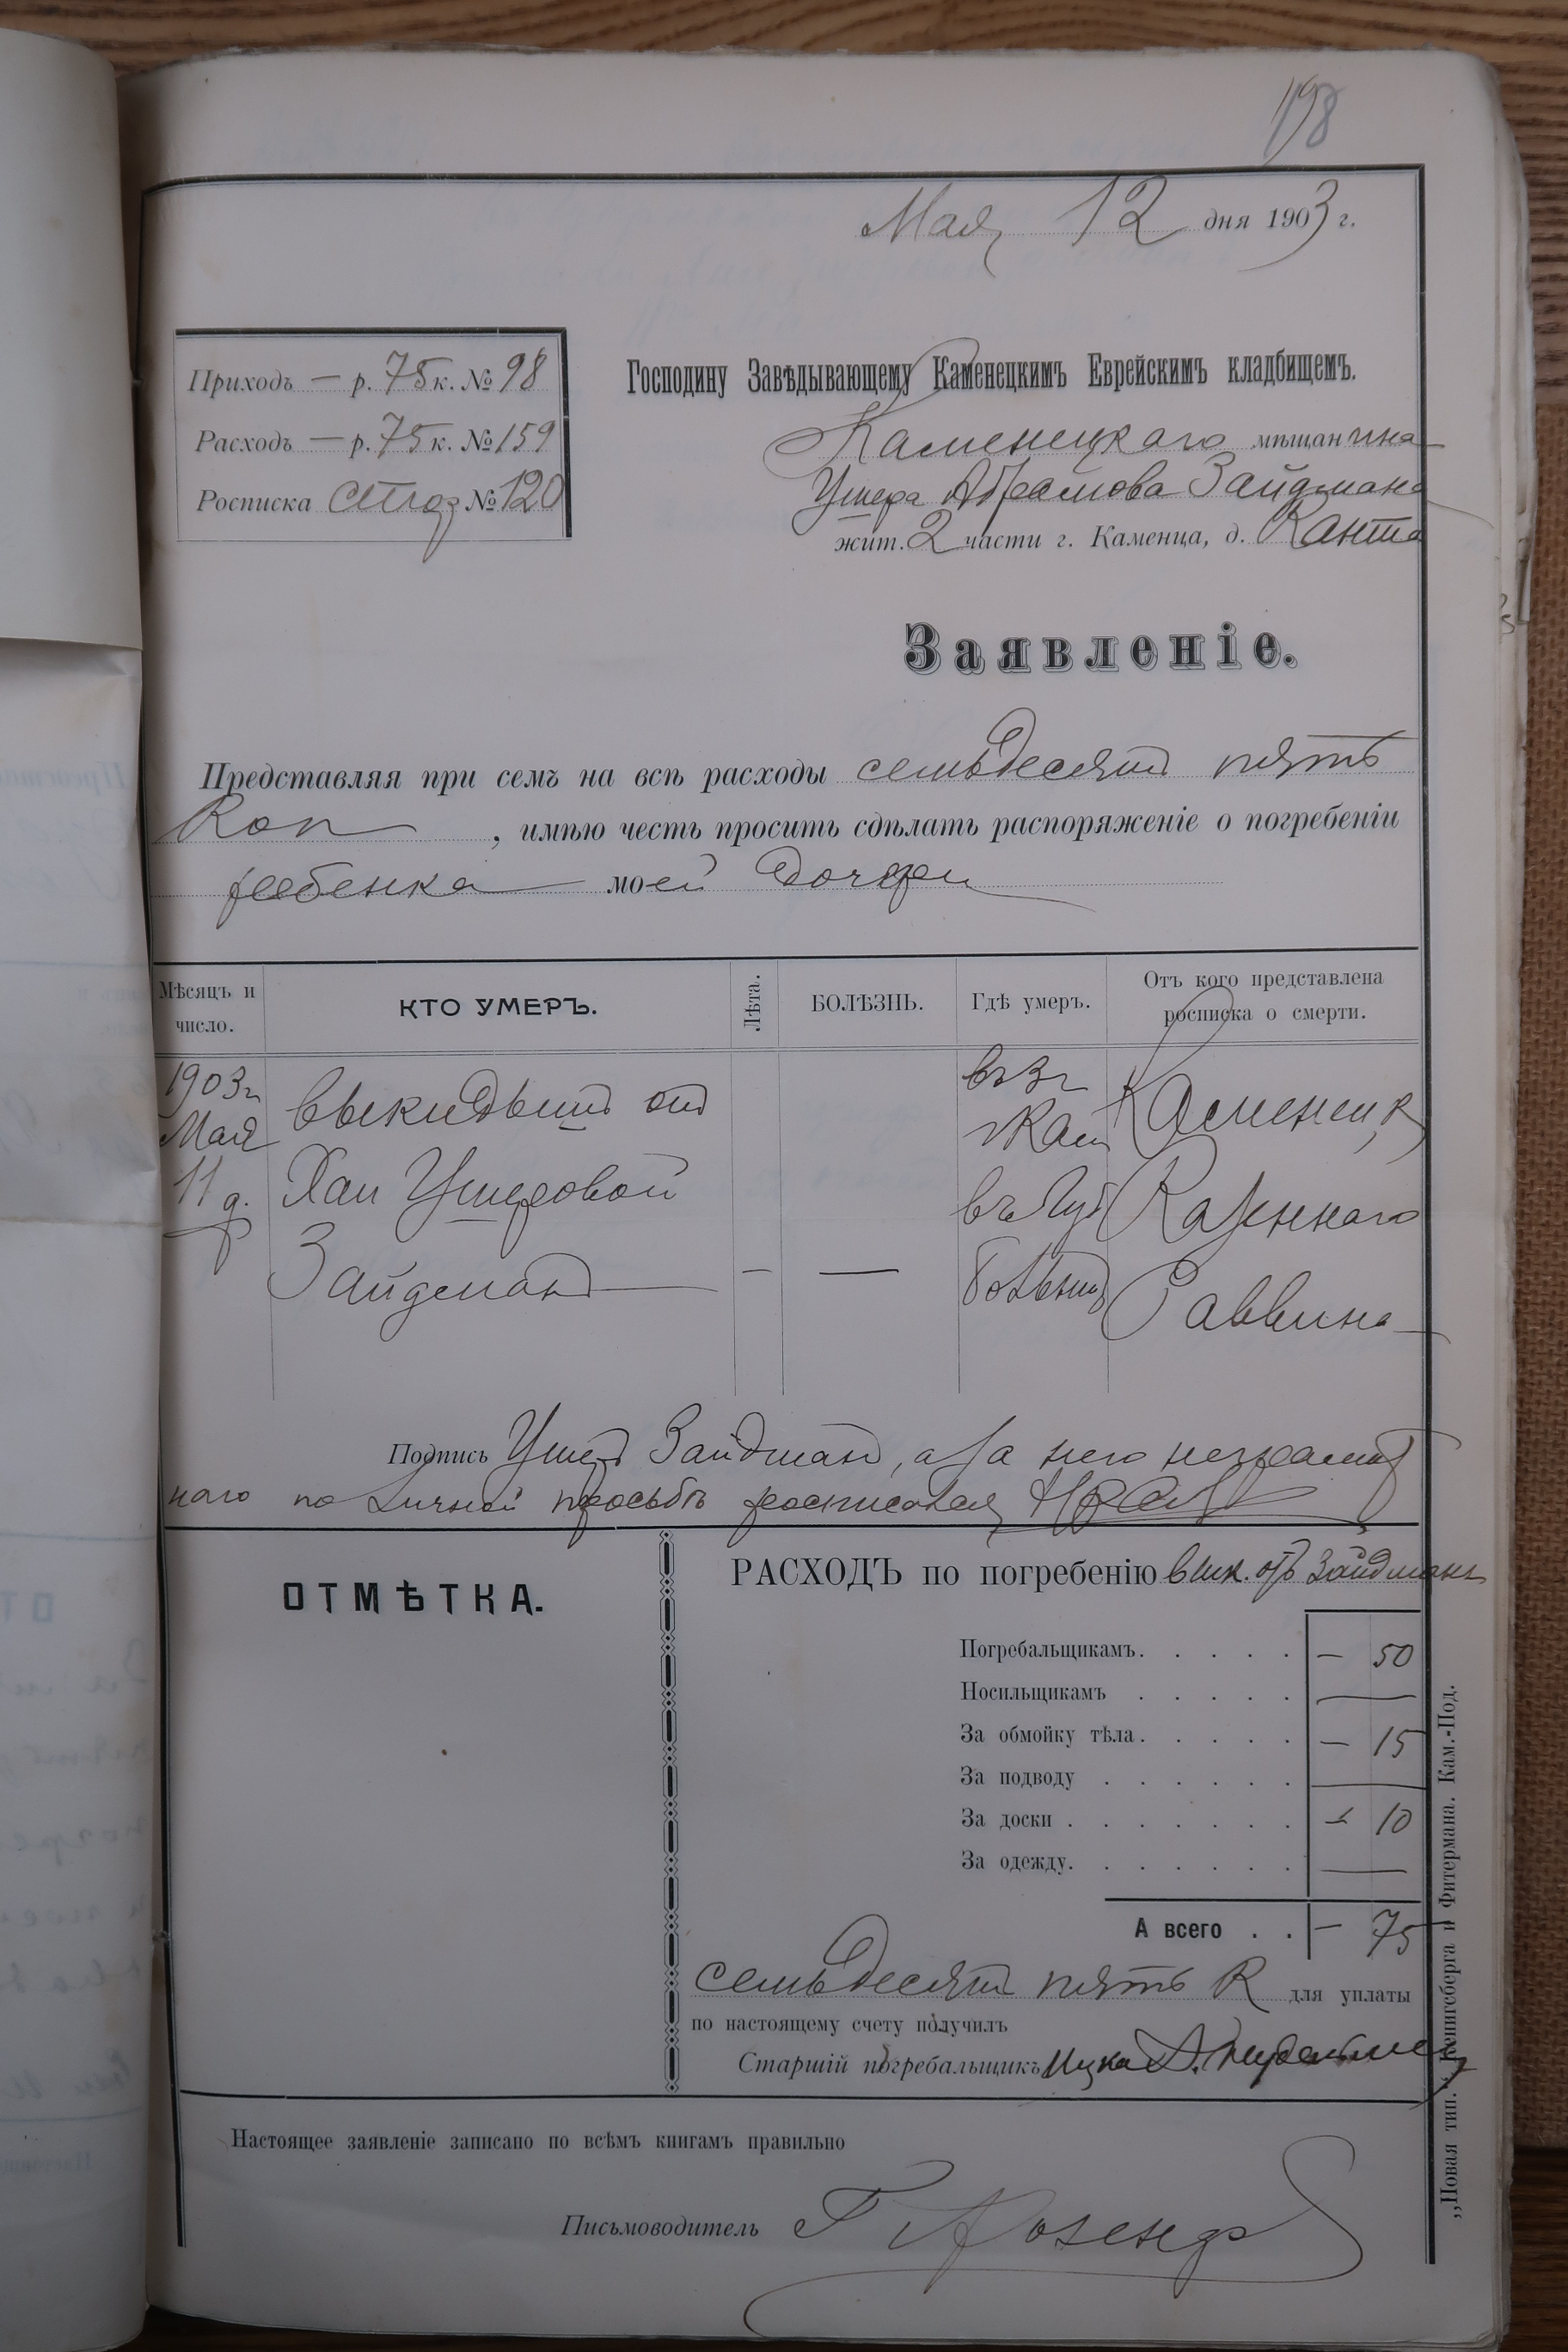 198
Мая 12 дня 1903 г.
Приходъ — р. 75 к. № 98
Расходъ — р. 75 к. № 159
Росписка № 120
Господину Завѣдывающему Каменецкимъ Еврейскимъ кладбищемъ.
Каменецкого мѣщанина
Ушера Абрамова Зайдмана
жит. 2 части г. Каменца, д. Канта
Заявленіе.
Представляя при семъ на всѣ расходы семьдесятъ пять
Коп , имѣю честь просить сдѣлать распоряженіе о погребеніи
ребенка моей дочери
Мѣсяцъ и число.
КТО УМЕРЪ.
Лѣта.
БОЛѢЗНЬ.
Гдѣ умеръ.
Отъ кого представлена росписка о смерти.
1903 г Мая 11 д.
выкидышъ отъ Хаи Ушеровой Зайдманъ
—
—
г Кам въ Губ больниц
Каменецк Казеннаго Раввина
Подпись Ушеръ Зайдманъ, а за него неграмот
наго по личной просьбѣ росписался
ОТМѢТКА.
РАСХОДЪ по погребенію вык. отъ Зайдманъ
Погребальщикамъ. — 50
Носильщикамъ —
За обмойку тѣла. — 15
За подводу —
За доски . — 10
За одежду. —
А всего . . — 75
семьдесятъ пять К для уплаты
по настоящему счету получилъ
Старшій погребальщикъ Ицка
Настоящее заявленіе записано по всѣмъ книгамъ правильно
Письмоводитель
„Новая тип." Кенигсберга и Фитермана. Кам.-Под.